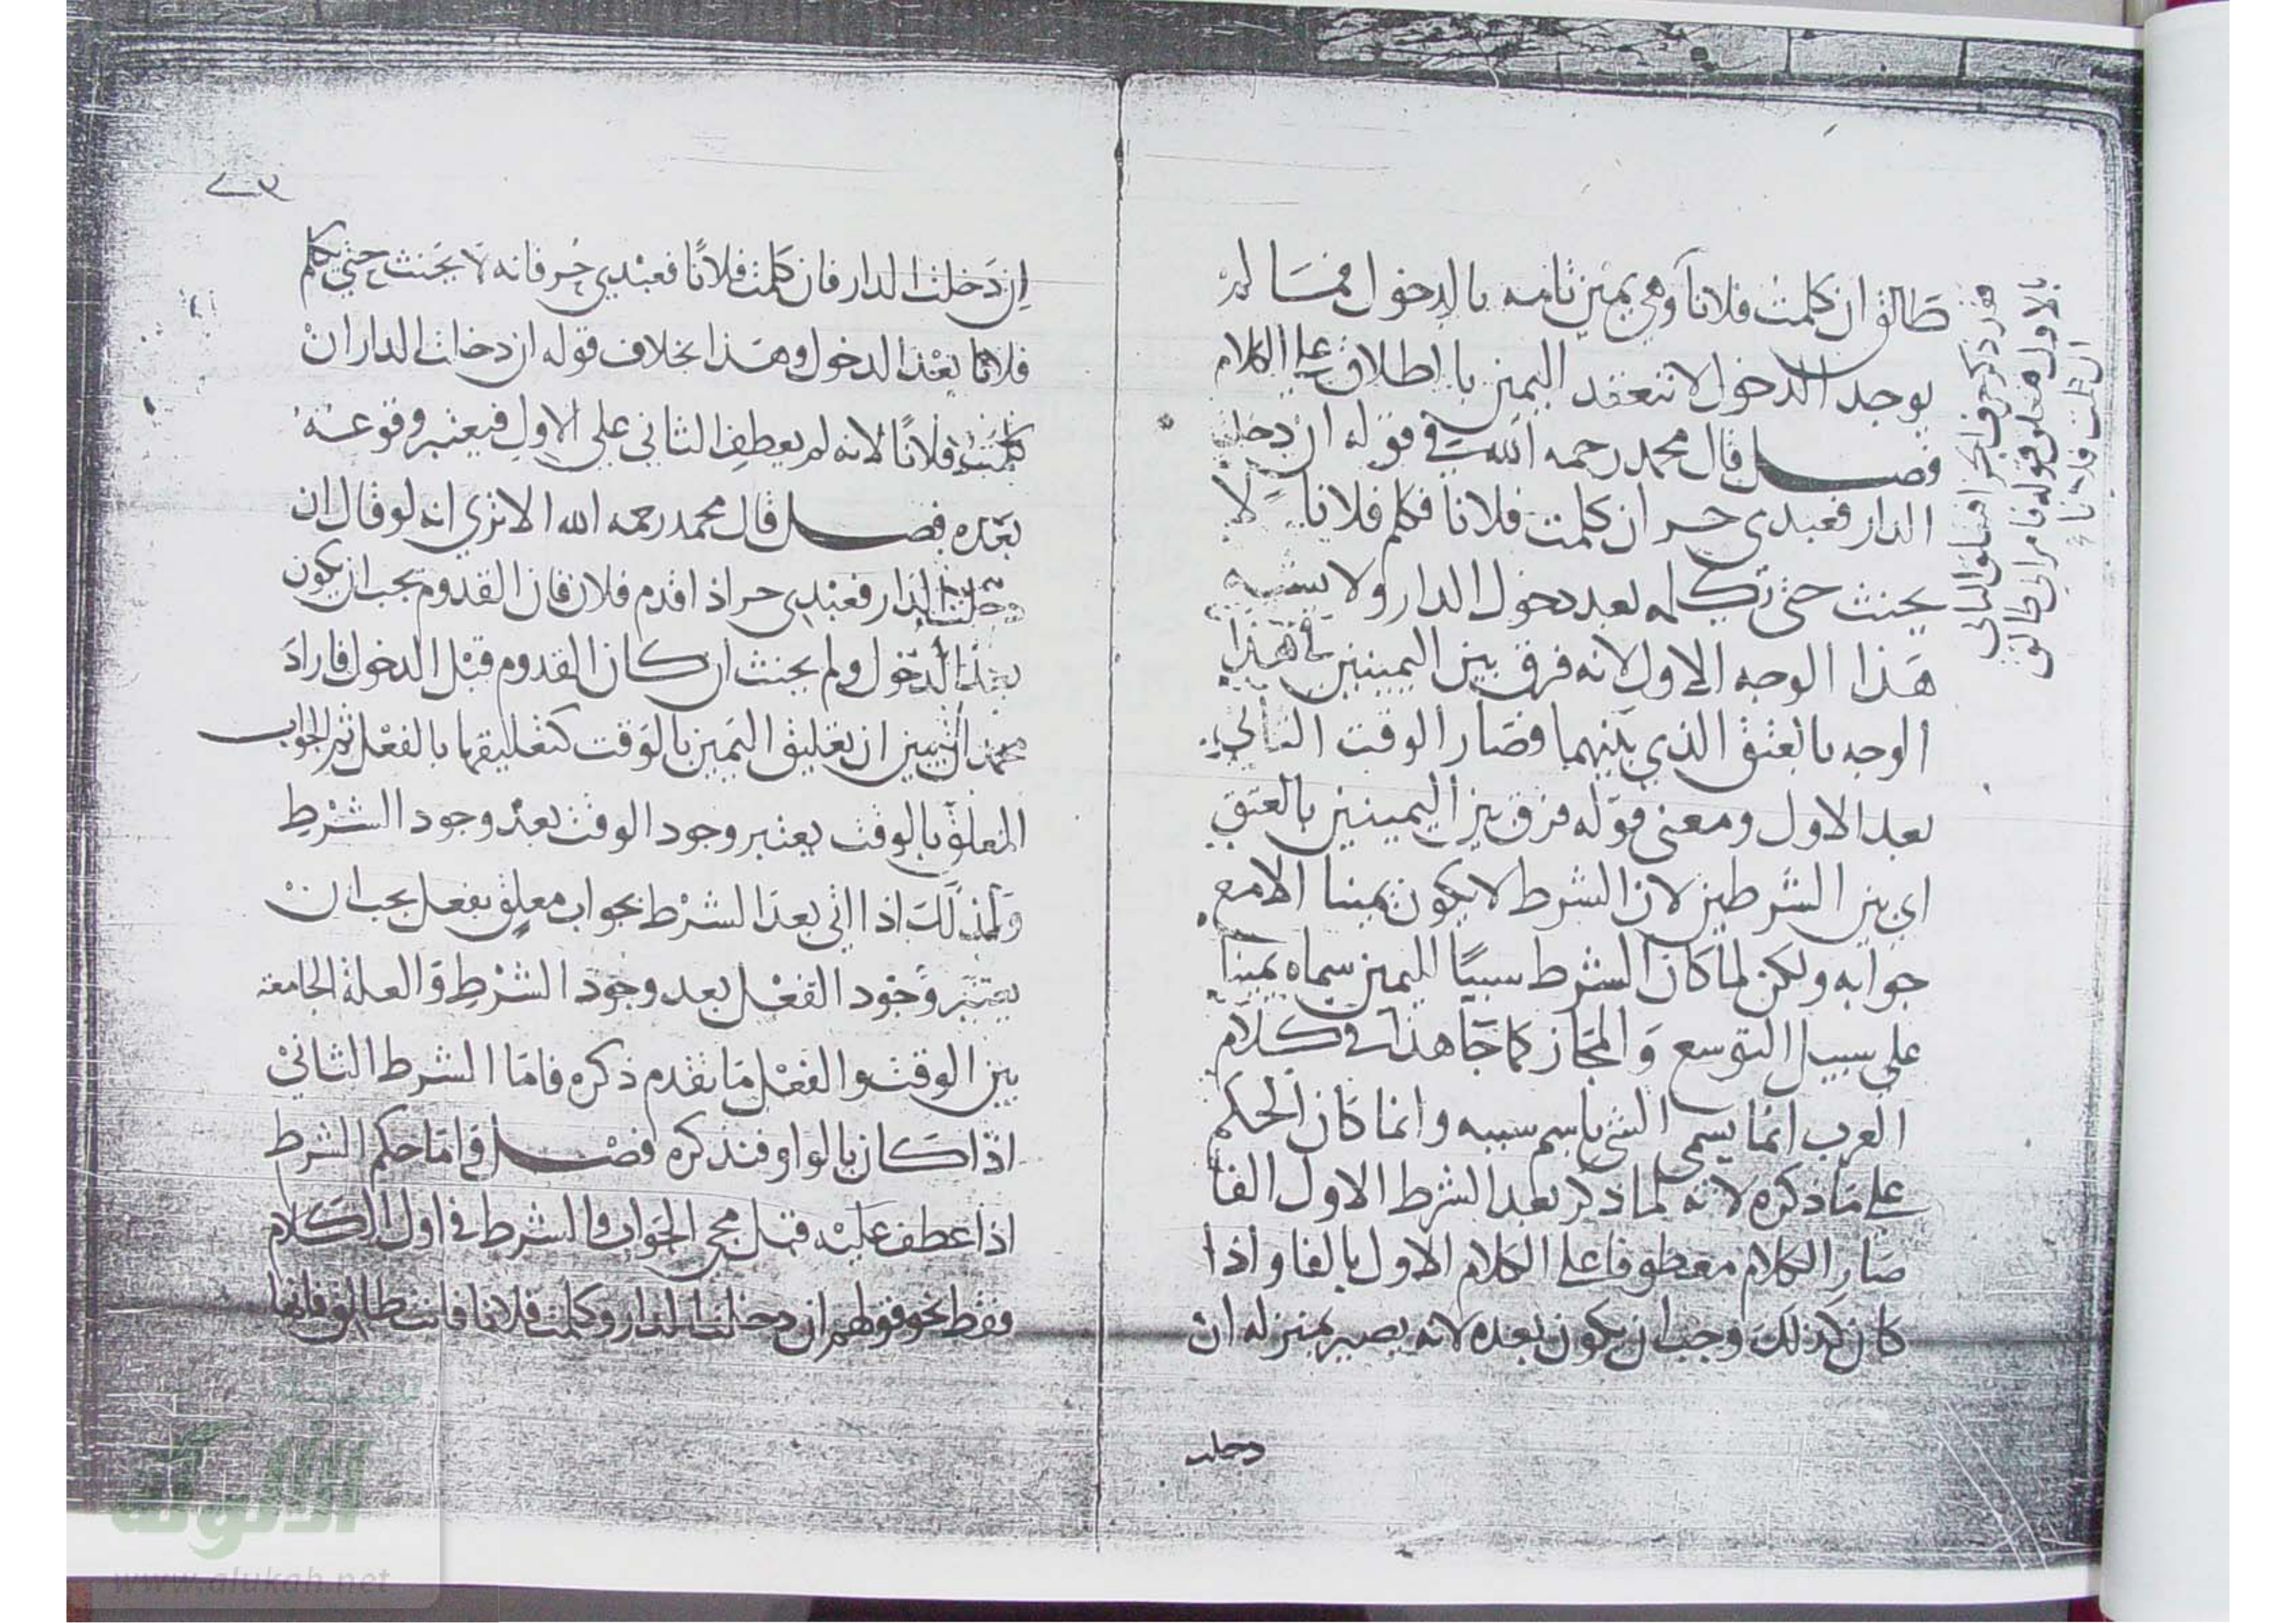 طالق ان كلمت فلاناً وهي يمين ثانيه بالدخول فما لم
يوجد الدخول لا تنعقد اليمين بالطلاق على الكلام
فصل قال محمد رحمه الله في قوله ان دخلت
الدار فعبدي حر ان كلمت فلانا فكلم فلانا لا
يحنث حتى تكلمه بعد دخول الدار ولا يشبه
هذا الوجه الاول لانه فرق بين اليمينين في هذا
الوجه بالعتق الذي بينهما فصار الوقت الثاني
بعد الاول ومعنى قوله فرق بين اليمينين بالعتق
اي بين الشرطين لان الشرط لا يكون يمينا الا مع
جوابه ولكن لما كان الشرط سببًا لليمين سماه يمينا
على سبيل التوسع والمجاز كما جا هذا في كلام
العرب انما يسمى الشي باسم سببه وانما كان الحكم
على ما ذكره لانه لما ذكر بعد الشرط الاول الفا
صار الكلام معطوفا على الكلام الاول بالفا واذا
كان كذلك وجب ان يكون بعده لانه يصير بمنزله ان
دخلت
هذر ذكر حرف الجزا فتعلق الثاني
بالاول فتعلق قوله فامراتي طالق
ان كلمت فلانا
٧٣
ان دخلت الدار فان كلمت فلانًا فعبدي حُر فانه لا يحنث حتى يكلم
فلانا بعد الدخول وهذا بخلاف قوله ان دخلت الدار ان
كلمت فلانًا لانه لم يعطف الثاني على الاول فيعتبر وقوعه
بعده فصل قال محمد رحمه الله الا ترى انه لو قال ان
دخلت الدار فعبدي حر اذا قدم فلان فان القدوم يجب ان يكون
بعد الدخول ولم يحنث ان كان القدوم قبل الدخول فاراد
محمد ان يبين ان تعليق اليمين بالوقت كتعليقها بالفعل ثم الجواب
المعلق بالوقت يعتبر وجود الوقت بعد وجود الشرط
وكذلك اذا اتى بعد الشرط بجواب معلق بفعل يجب ان
يعتبر وجود الفعل بعد وجود الشرط والعلة الجامعة
بين الوقت والفعل ما تقدم ذكره فاما الشرط الثاني
اذا كان بالواو فنذكره فصل فاما حكم الشرط
اذا عطف عليه قبل مجي الجواب والشرط في اول الكلام
فقط نحو قولهم ان دخلت الدار وكلمت فلانا فانت طالق فانها
الألوكة
www.alukah.net